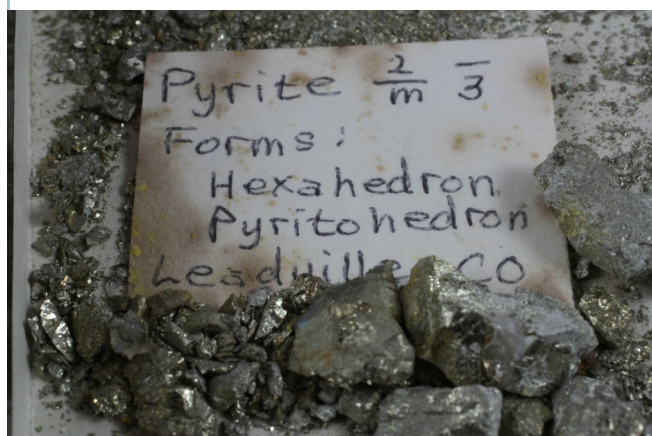 Pyrite 2/m 3̅
Forms:
Hexahedron
Pyritohedron
Leadville CO